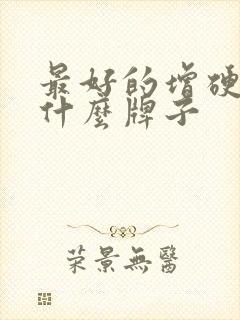 最好的增硬
什麼牌子
荣景無醫